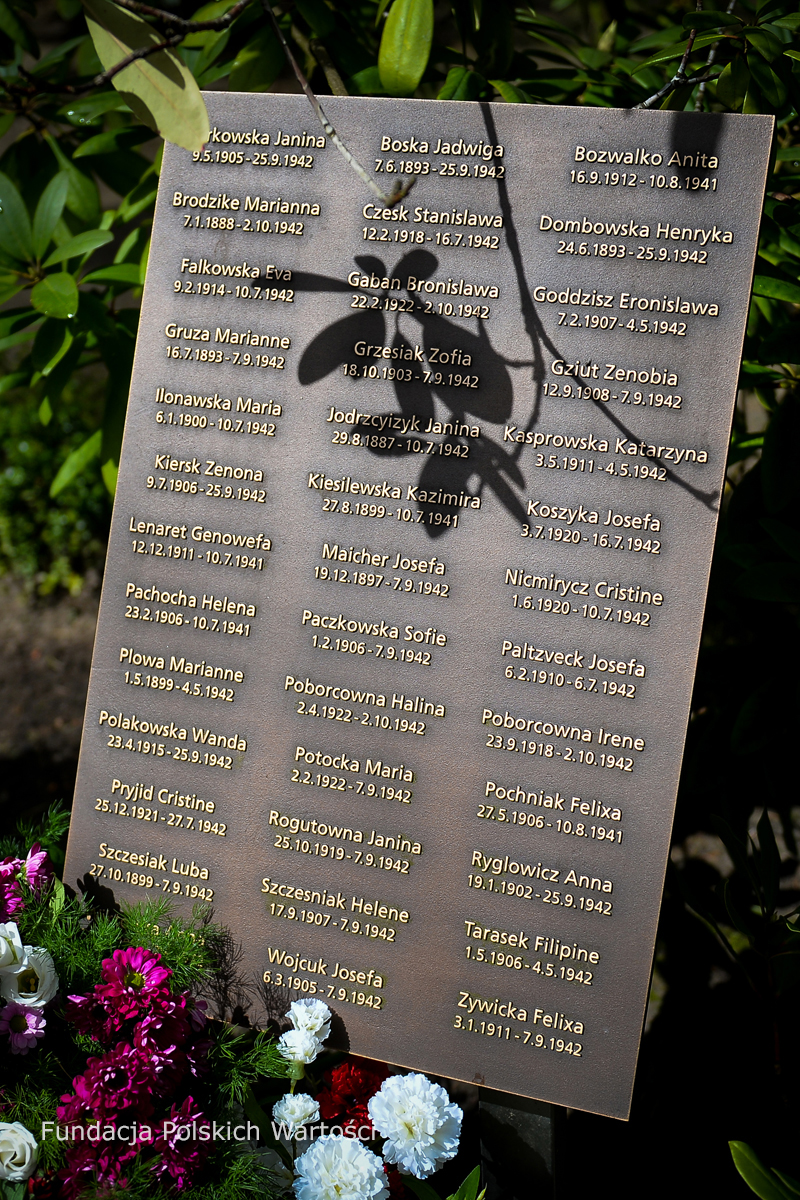 Janina
9.5.1905 - 25.9.1942
Brodzike Marianna
7.1.1888 - 2.10.1942
Falkowska Eva
9.2.1914 - 10.7.1942
Gruza Marianne
16.7.1893 - 7.9.1942
Ilonawska Maria
6.1.1900 - 10.7.1942
Kiersk Zenona
9.7.1906 - 25.9.1942
Lenaret Genowefa
12.12.1911 - 10.7.1941
Pachocha Helena
23.2.1906 - 10.7.1941
Plowa Marianne
1.5.1899 - 4.5.1942
Polakowska Wanda
23.4.1915 - 25.9.1942
Pryjid Cristine
25.12.1921 - 27.7.1942
Szczesiak Luba
27.10.1899 - 7.9.1942
Boska Jadwiga
7.6.1893 - 25.9.1942
Czesk Stanislawa
12.2.1918 - 16.7.1942
Gaban Bronislawa
22.2.1922 - 2.10.1942
Grzesiak Zofia
18.10.1903 - 7.9.1942
Jodrzcyizyk Janina
29.8.1887 - 10.7.1942
Kiesilewska Kazimira
27.8.1899 - 10.7.1941
Maicher Josefa
19.12.1897 - 7.9.1942
Paczkowska Sofie
1.2.1906 - 7.9.1942
Poborcowna Halina
2.4.1922 - 2.10.1942
Potocka Maria
2.2.1922 - 7.9.1942
Rogutowna Janina
25.10.1919 - 7.9.1942
Szczesniak Helene
17.9.1907 - 7.9.1942
Wojcuk Josefa
6.3.1905 - 7.9.1942
Bozwalko Anita
16.9.1912 - 10.8.1941
Dombowska Henryka
24.6.1893 - 25.9.1942
Goddzisz Eronislawa
7.2.1907 - 4.5.1942
Gziut Zenobia
12.9.1908 - 7.9.1942
Kasprowska Katarzyna
3.5.1911 - 4.5.1942
Koszyka Josefa
3.7.1920 - 16.7.1942
Nicmirycz Cristine
1.6.1920 - 10.7.1942
Paltzveck Josefa
6.2.1910 - 6.7.1942
Poborcowna Irene
23.9.1918 - 2.10.1942
Pochniak Felixa
27.5.1906 - 10.8.1941
Ryglowicz Anna
19.1.1902 - 25.9.1942
Tarasek Filipine
1.5.1906 - 4.5.1942
Zywicka Felixa
3.1.1911 - 7.9.1942
Fundacja Polskich Wartości